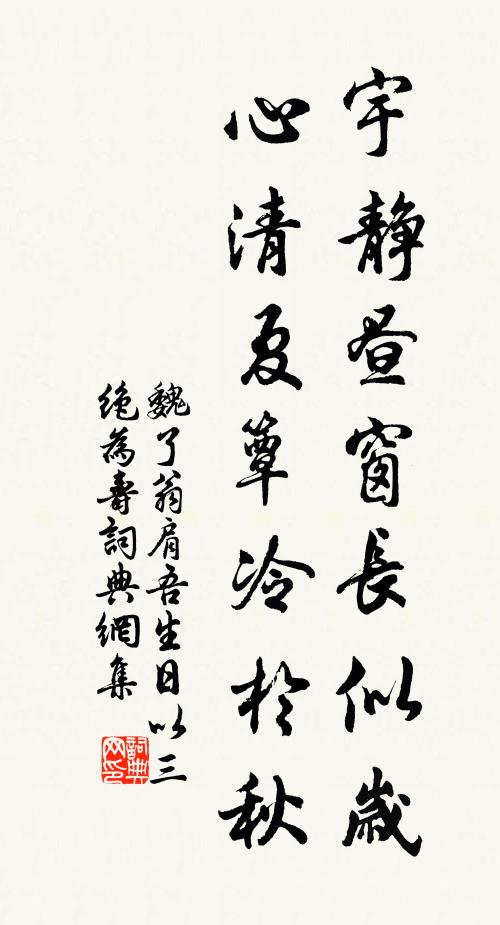 宇靜晝窗長似歲
心清夏簟冷於秋
魏了翁肩吾生日以三
絶為壽詞典網集
詞典
网印